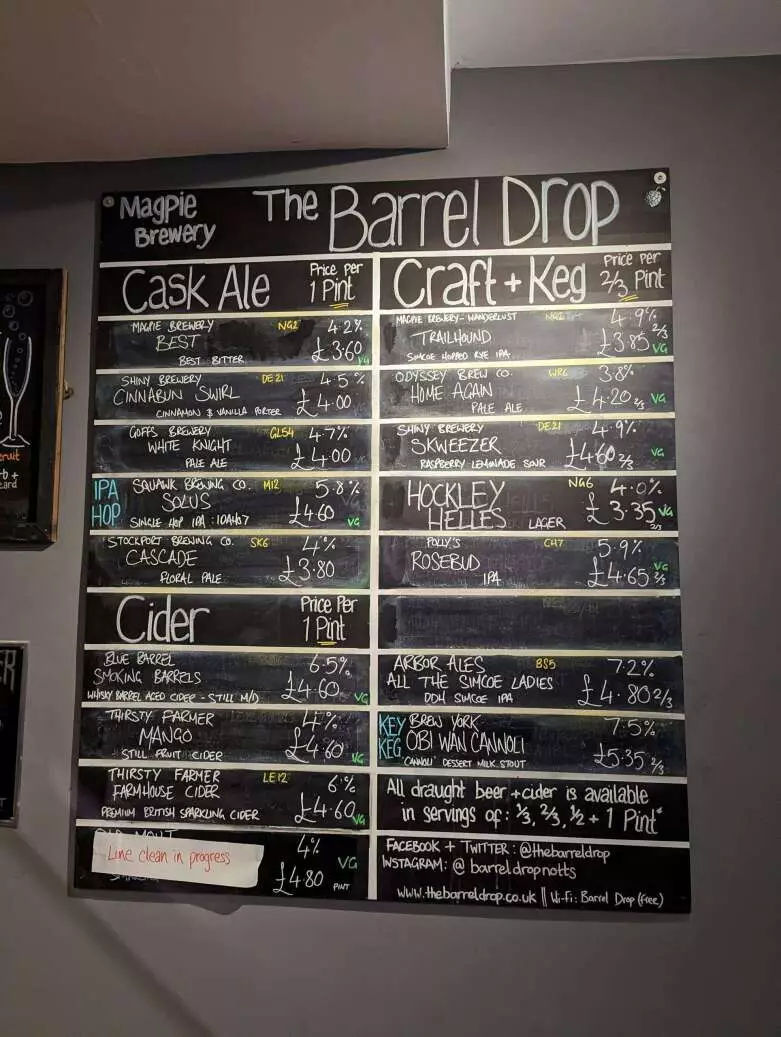 Magpie Brewery
The Barrel Drop
Cask Ale
Price Per 1 Pint
MAGPIE BREWERY NG2 4.2%
BEST £3.60
BEST BITTER VG
SHINY BREWERY DE21 4.5%
CINNABUN SWIRL £4.00
CINNAMON & VANILLA PORTER
GOFFS BREWERY GL54 4.7%
WHITE KNIGHT £4.00
PALE ALE
IPA HOP
SQUAWK BREWING CO. M12 5.8%
SOLUS £4.60
SINGLE HOP IPA : IDAHO7 VG
STOCKPORT BREWING CO. SK6 4%
CASCADE £3.80
FLORAL PALE
Cider
Price Per 1 Pint
BLUE BARREL 6.5%
SMOKING BARRELS £4.60
WHISKY BARREL AGED CIDER - STILL M/D VG
THIRSTY FARMER 4%
MANGO £4.60
STILL FRUIT CIDER VG
THIRSTY FARMER LE12 6%
FARMHOUSE CIDER £4.60
PREMIUM BRITISH SPARKLING CIDER VG
4%
Line clean in progress VG
£4.80 PINT
Craft + Keg
Price Per 2/3 Pint
MAGPIE BREWERY - WANDERLUST NG2 4.9%
TRAILHOUND £3.85 2/3
SIMCOE HOPPED RYE IPA VG
ODYSSEY BREW CO. WR6 3.8%
HOME AGAIN £4.20 2/3 VG
PALE ALE
SHINY BREWERY DE21 4.9%
SKWEEZER £4.60 2/3 VG
RASPBERRY LEMONADE SOUR
HOCKLEY NG6 4.0%
HELLES LAGER £3.35 2/3 VG
POLLY'S CH7 5.9%
ROSEBUD VG
IPA £4.65 2/3
ARBOR ALES BS5 7.2%
ALL THE SIMCOE LADIES £4.80 2/3
DDH SIMCOE IPA
KEY KEG
BREW YORK 7.5%
OBI WAN CANNOLI £5.35 2/3
'CANNOLI' DESSERT MILK STOUT
All draught beer + cider is available
in servings of: 1/3, 2/3, 1/2 + 1 Pint*
FACEBOOK + TWITTER: @thebarreldrop
INSTAGRAM: @barreldropnotts
www.thebarreldrop.co.uk || Wi-Fi: Barrel Drop (free)